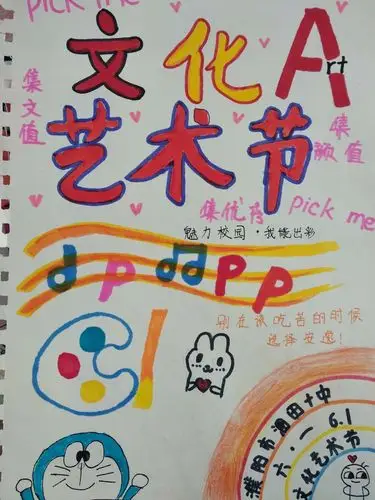 PICK ME
文化Art
艺术节
集
文
值
集
颜
值
集优秀 PICK me
魅力校园·我能出彩
别在该吃苦的时候
选择安逸！
濮阳市油田十中
六·一 6.1
文化艺术节